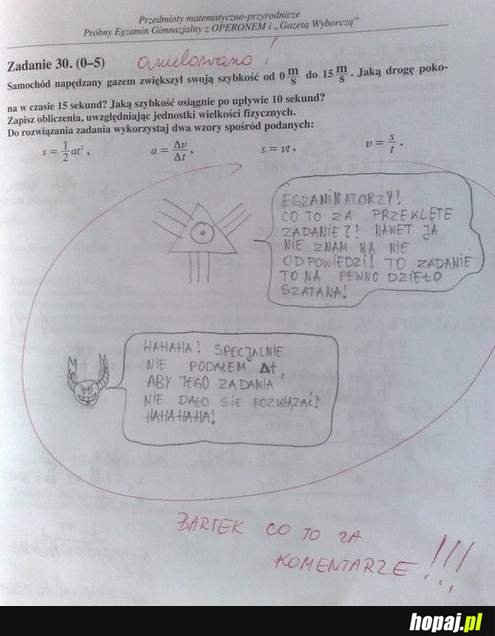 Przedmioty matematyczno-przyrodnicze
Próbny Egzamin Gimnazjalny z OPERONEM i „Gazetą Wyborczą”
Zadanie 30. (0–5) anulowano!
Samochód napędzany gazem zwiększył swoją szybkość od 0 m/s do 15 m/s. Jaką drogę poko-
na w czasie 15 sekund? Jaką szybkość osiągnie po upływie 10 sekund?
Zapisz obliczenia, uwzględniając jednostki wielkości fizycznych.
Do rozwiązania zadania wykorzystaj dwa wzory spośród podanych:
s = 1/2 at², a = Δv/Δt, s = vt, v = s/t.
EGZAMINATORZY!
CO TO ZA PRZEKLĘTE
ZADANIE?! NAWET JA
NIE ZNAM NA NIE
ODPOWIEDZI! TO ZADANIE
TO NA PEWNO DZIEŁO
SZATANA!
HAHAHA! SPECJALNIE
NIE PODAŁEM Δt,
ABY TEGO ZADANIA
NIE DAŁO SIĘ ROZWIĄZAĆ!
HAHAHAHA!
BARTEK CO TO ZA
KOMENTARZE!!!
hopaj.pl